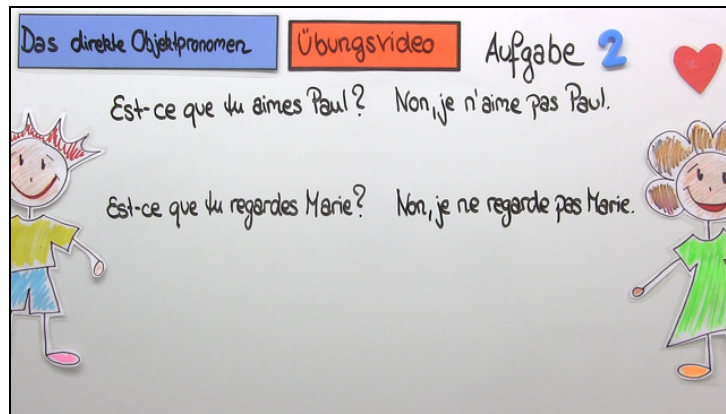 Das direkte Objektpronomen Übungsvideo Aufgabe 2
Est-ce que tu aimes Paul? Non, je n'aime pas Paul.
Est-ce que tu regardes Marie? Non, je ne regarde pas Marie.